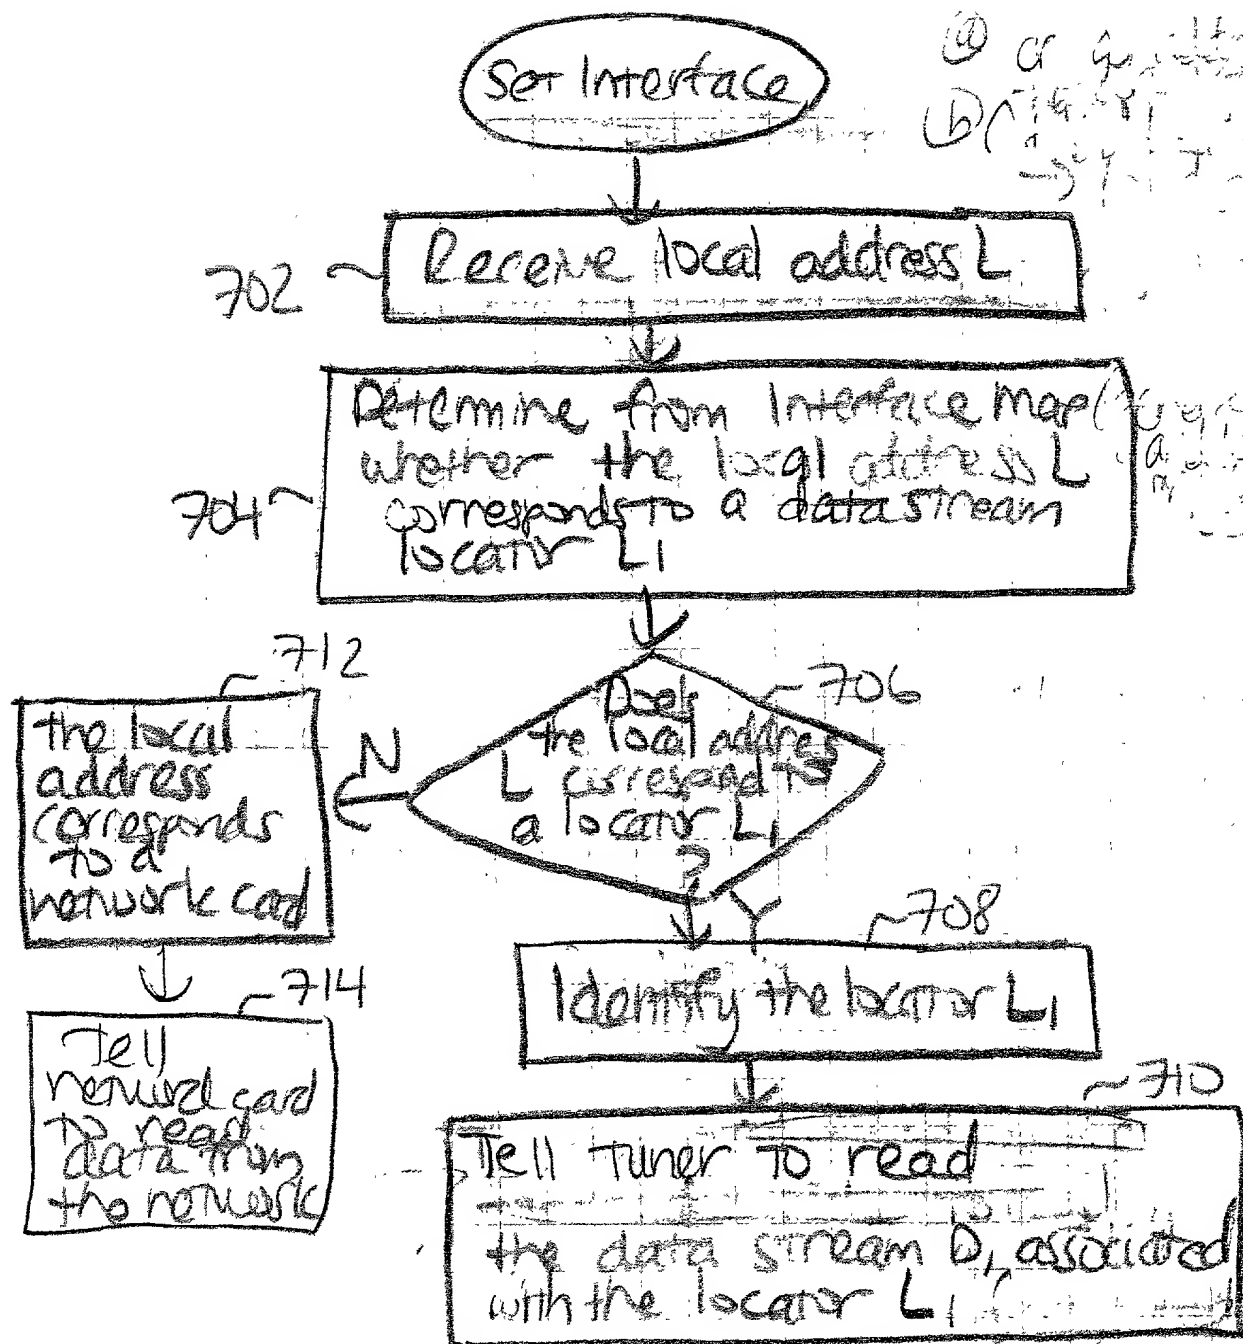 Set Interface
702
Receive local address L
704
Determine from Interface Map
whether the local address L
corresponds to a data stream
locator L1
706
Does
the local address
L correspond to
a locator L1
?
N
Y
712
the local
address
corresponds
to a
network card
714
Tell
network card
to read
data from
the network
708
Identify the locator L1
710
Tell tuner to read
the data stream D1 associated
with the locator L1